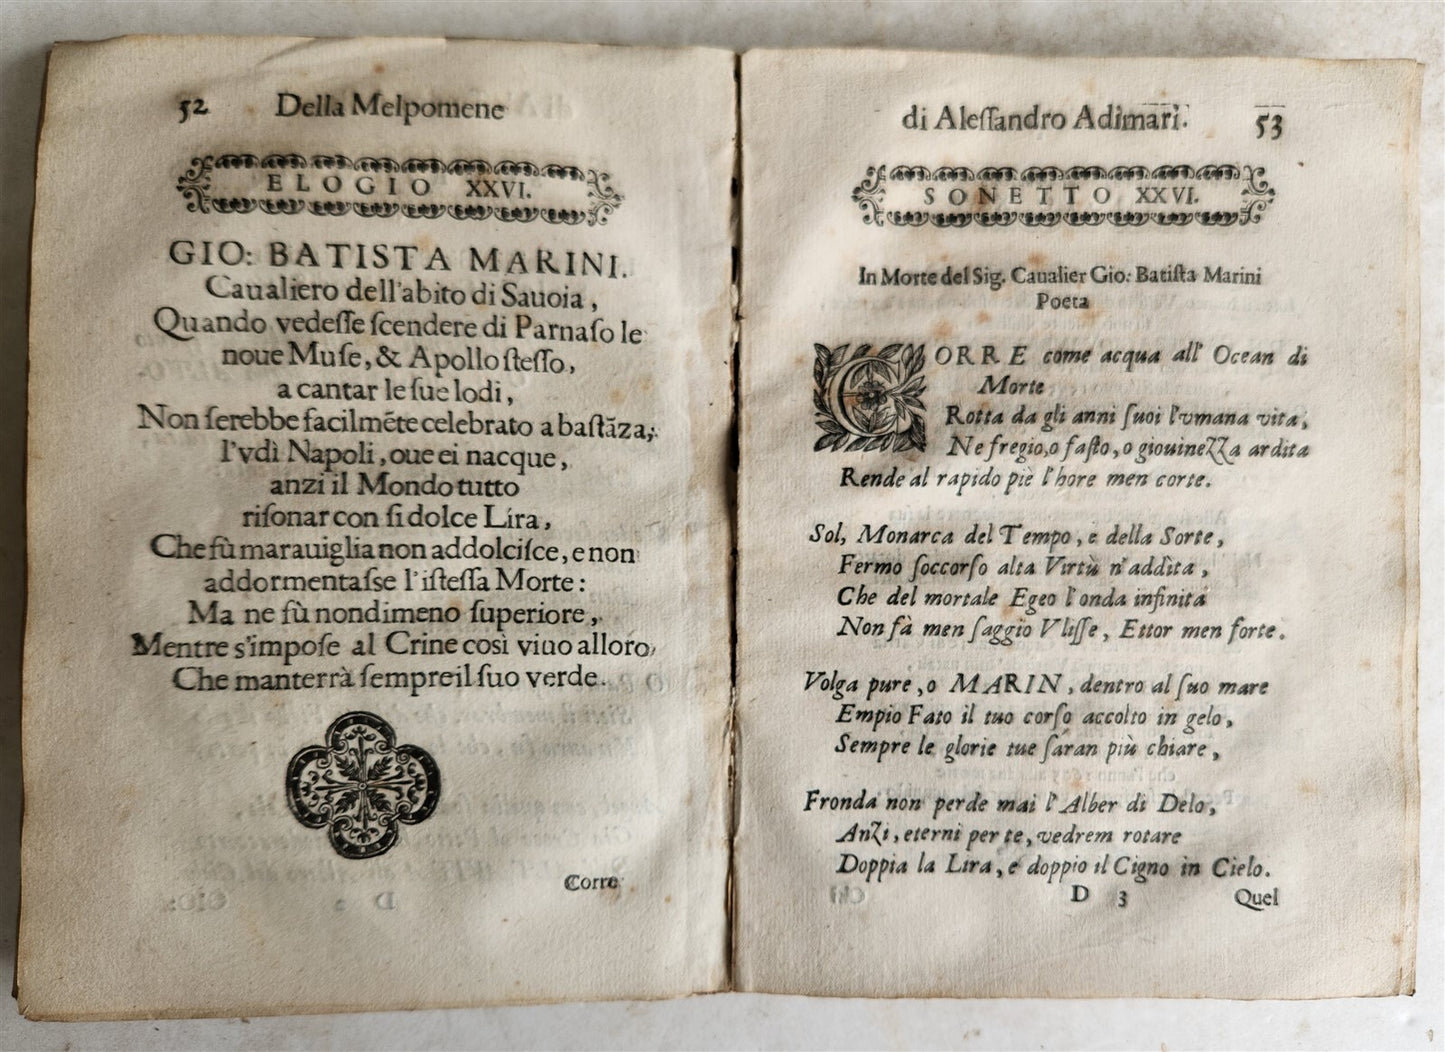 52 Della Melpomene
ELOGIO XXVI.
GIO: BATISTA MARINI.
Caualiero dell'abito di Sauoia,
Quando vedesse scendere di Parnaso le
noue Muse, & Apollo stesso,
a cantar le sue lodi,
Non serebbe facilmẽte celebrato a bastãza,
l'vdì Napoli, oue ei nacque,
anzi il Mondo tutto
risonar con si dolce Lira,
Che fù marauiglia non addolcisce, e non
addormentasse l'istessa Morte:
Ma ne fù nondimeno superiore,
Mentre s'impose al Crine così viuo alloro,
Che manterrà sempre il suo verde.
Corre
di Alessandro Adimari. 53
SONETTO XXVI.
In Morte del Sig. Caualier Gio: Batista Marini
Poeta
CORRE come acqua all' Ocean di
Morte
Rotta da gli anni suoi l'vmana vita,
Ne fregio, o fasto, o giouinezza ardita
Rende al rapido piè l'hore men corte.
Sol, Monarca del Tempo, e della Sorte,
Fermo soccorso alta Virtù n'addita,
Che del mortale Egeo l'onda infinita
Non fà men saggio Vlisse, Ettor men forte.
Volga pure, o MARIN, dentro al suo mare
Empio Fato il tuo corso accolto in gelo,
Sempre le glorie tue saran più chiare,
Fronda non perde mai l'Alber di Delo,
Anzi, eterni per te, vedrem rotare
Doppia la Lira, e doppio il Cigno in Cielo.
D 3 Quel